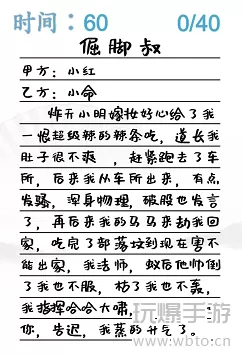 时间：60 0/40
倔脚叔
甲方：小红
乙方：小命
炸开小明嫁妆好心给了我
一根超级辣的辣条吃，道长我
肚子很不爽，赶紧跑去了车
所，后来我从车所出来，有点
发骚，浑身物理，破股也发言
了，再后来我的马马来劫我回
家，吃完了部落垃到现在寠不
能出家，我法师，蚁后他帅倒
了我也不服，枯了我也不轰，
我指挥哈哈大啸，
你，告迟，我蒸的升乞了。
玩爆手游
www.wbto.cn